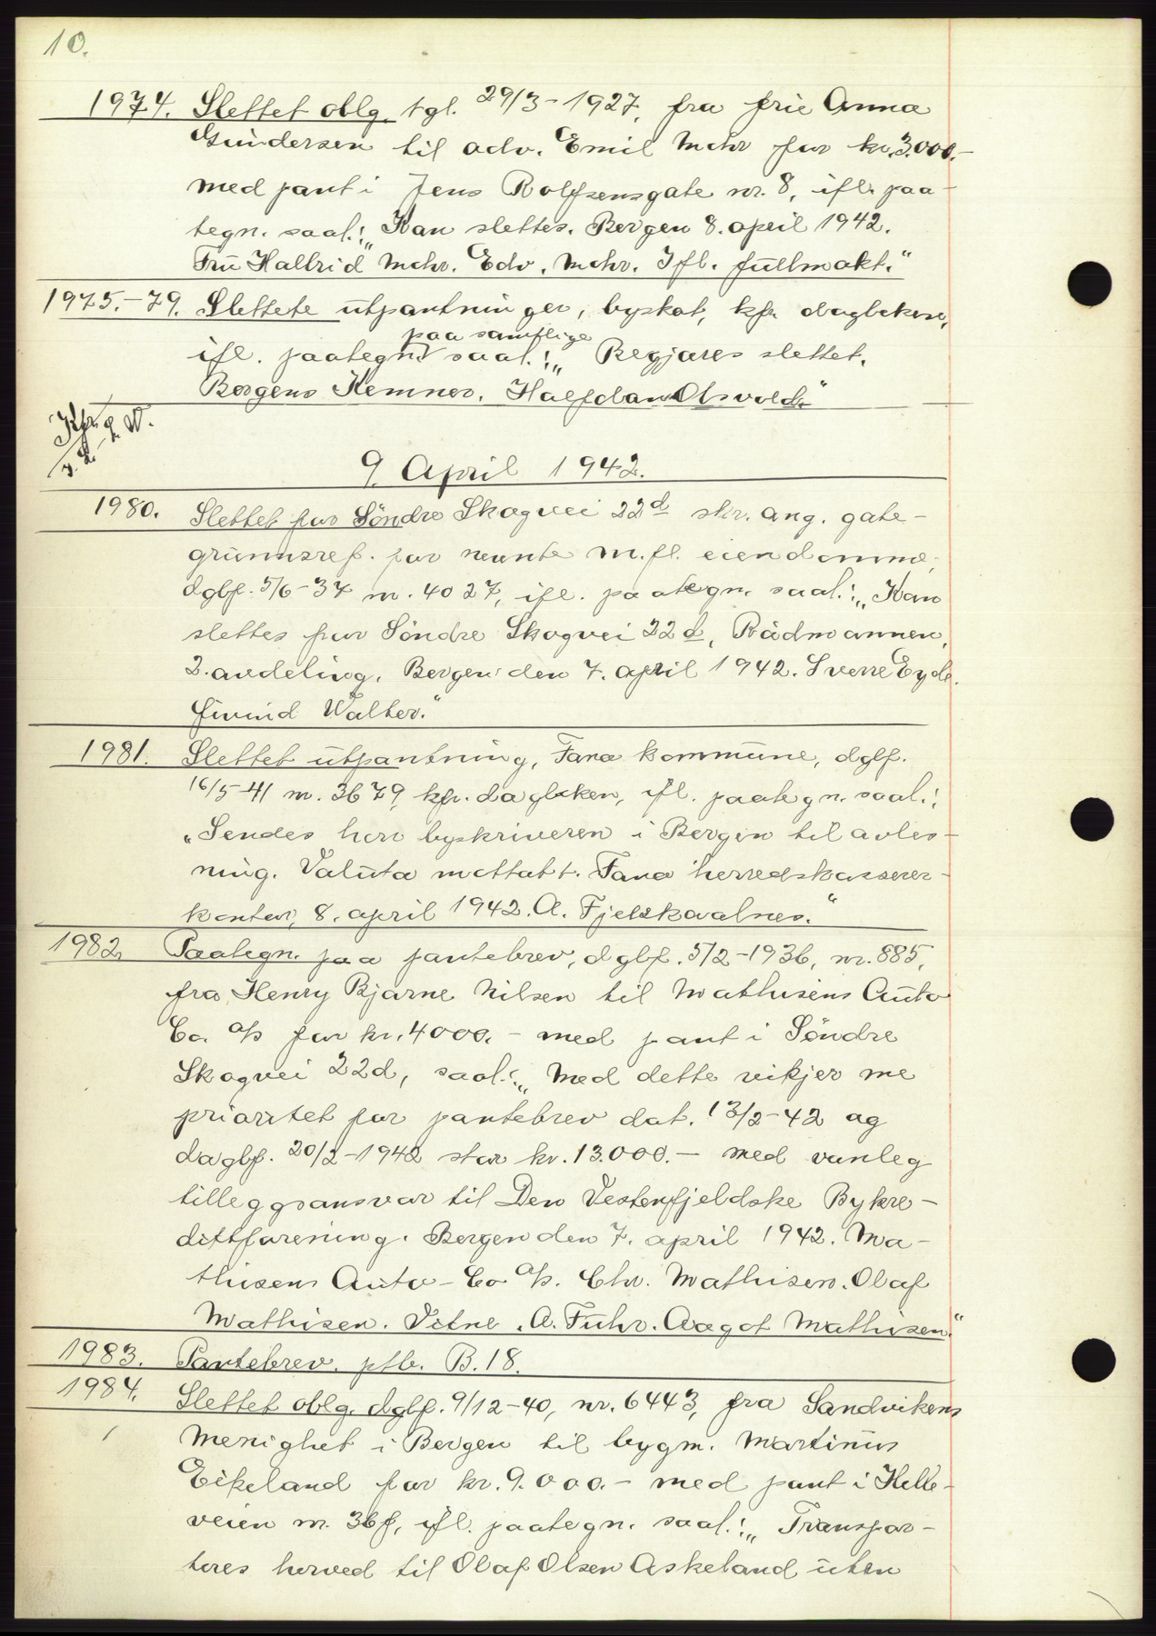 10.
1974. Slettet oblg. tgl. 29/3-1927, fra frie Anna
Gundersen til adv. Emil Mohr for kr. 3.000.-
med pant i Jens Rolfsensgate nr. 8, ifl. paa-
tegn. saal.: „Kan slettes. Bergen 8. april 1942.
Fru Halbrid Mohr. Edv. Mohr. Ifl. fullmakt."
1975.-79. Slettete utpantninger, byskat, kfr. dagboken,
paa samtlige
ifl. paategn. saal.: „Begjæres slettet.
Bergens Kemner. Halfdan Olsvold."
9. April 1942.
1980. Slettet for Söndre Skogvei 22d skr. ang. gate-
grunnsref. for nevnte m.fl. eiendomme,
dgbf. 5/6-37 nr. 4027, ifl. paategn. saal.: „Kan
slettes for Söndre Skogvei 22d, Rådmannen,
2. avdeling. Bergen den 7. april 1942. Sverre Eyde.
Eivind Walter."
1981. Slettet utpantning, Fana kommune, dgbf.
16/5-41 nr. 3679, kfr. dagboken, ifl. paategn. saal.:
„Sendes herr byskriveren i Bergen til avles-
ning. Valuta mottatt. Fana herredskasserer-
kontor, 8. april 1942. A. Fjelskaalnes."
1982. Paategn. paa pantebrev, dgbf. 5/2-1936, nr. 885,
fra Henry Bjarne Nilsen til Mathisens Auto
Co. a/s for kr. 4000.- med pant i Söndre
Skogvei 22d, saal.: „Med dette vikjer me
prioritet for pantebrev dat. 13/2-42 og
dagbf. 20/2-1942 stor kr. 13.000.- med vanleg
tilleggsansvar til Den Vestenfjeldske Bykre-
dittforening. Bergen den 7. april 1942. Ma-
thisens Auto-Co a/s. Chr. Mathisen. Olaf
Mathisen. Vitne. A. Fuhr. Aagot Mathisen."
1983. Pantebrev, ptb. B. 18.
1984. Slettet oblg. dgbf. 9/12-40, nr. 6443, fra Sandvikens
Menighet i Bergen til bygm. Martinus
Eikeland for kr. 9.000.- med pant i Helle-
veien nr. 36f, ifl. paategn. saal.: „Transpor-
teres herved til Olaf Olsen Askeland uten